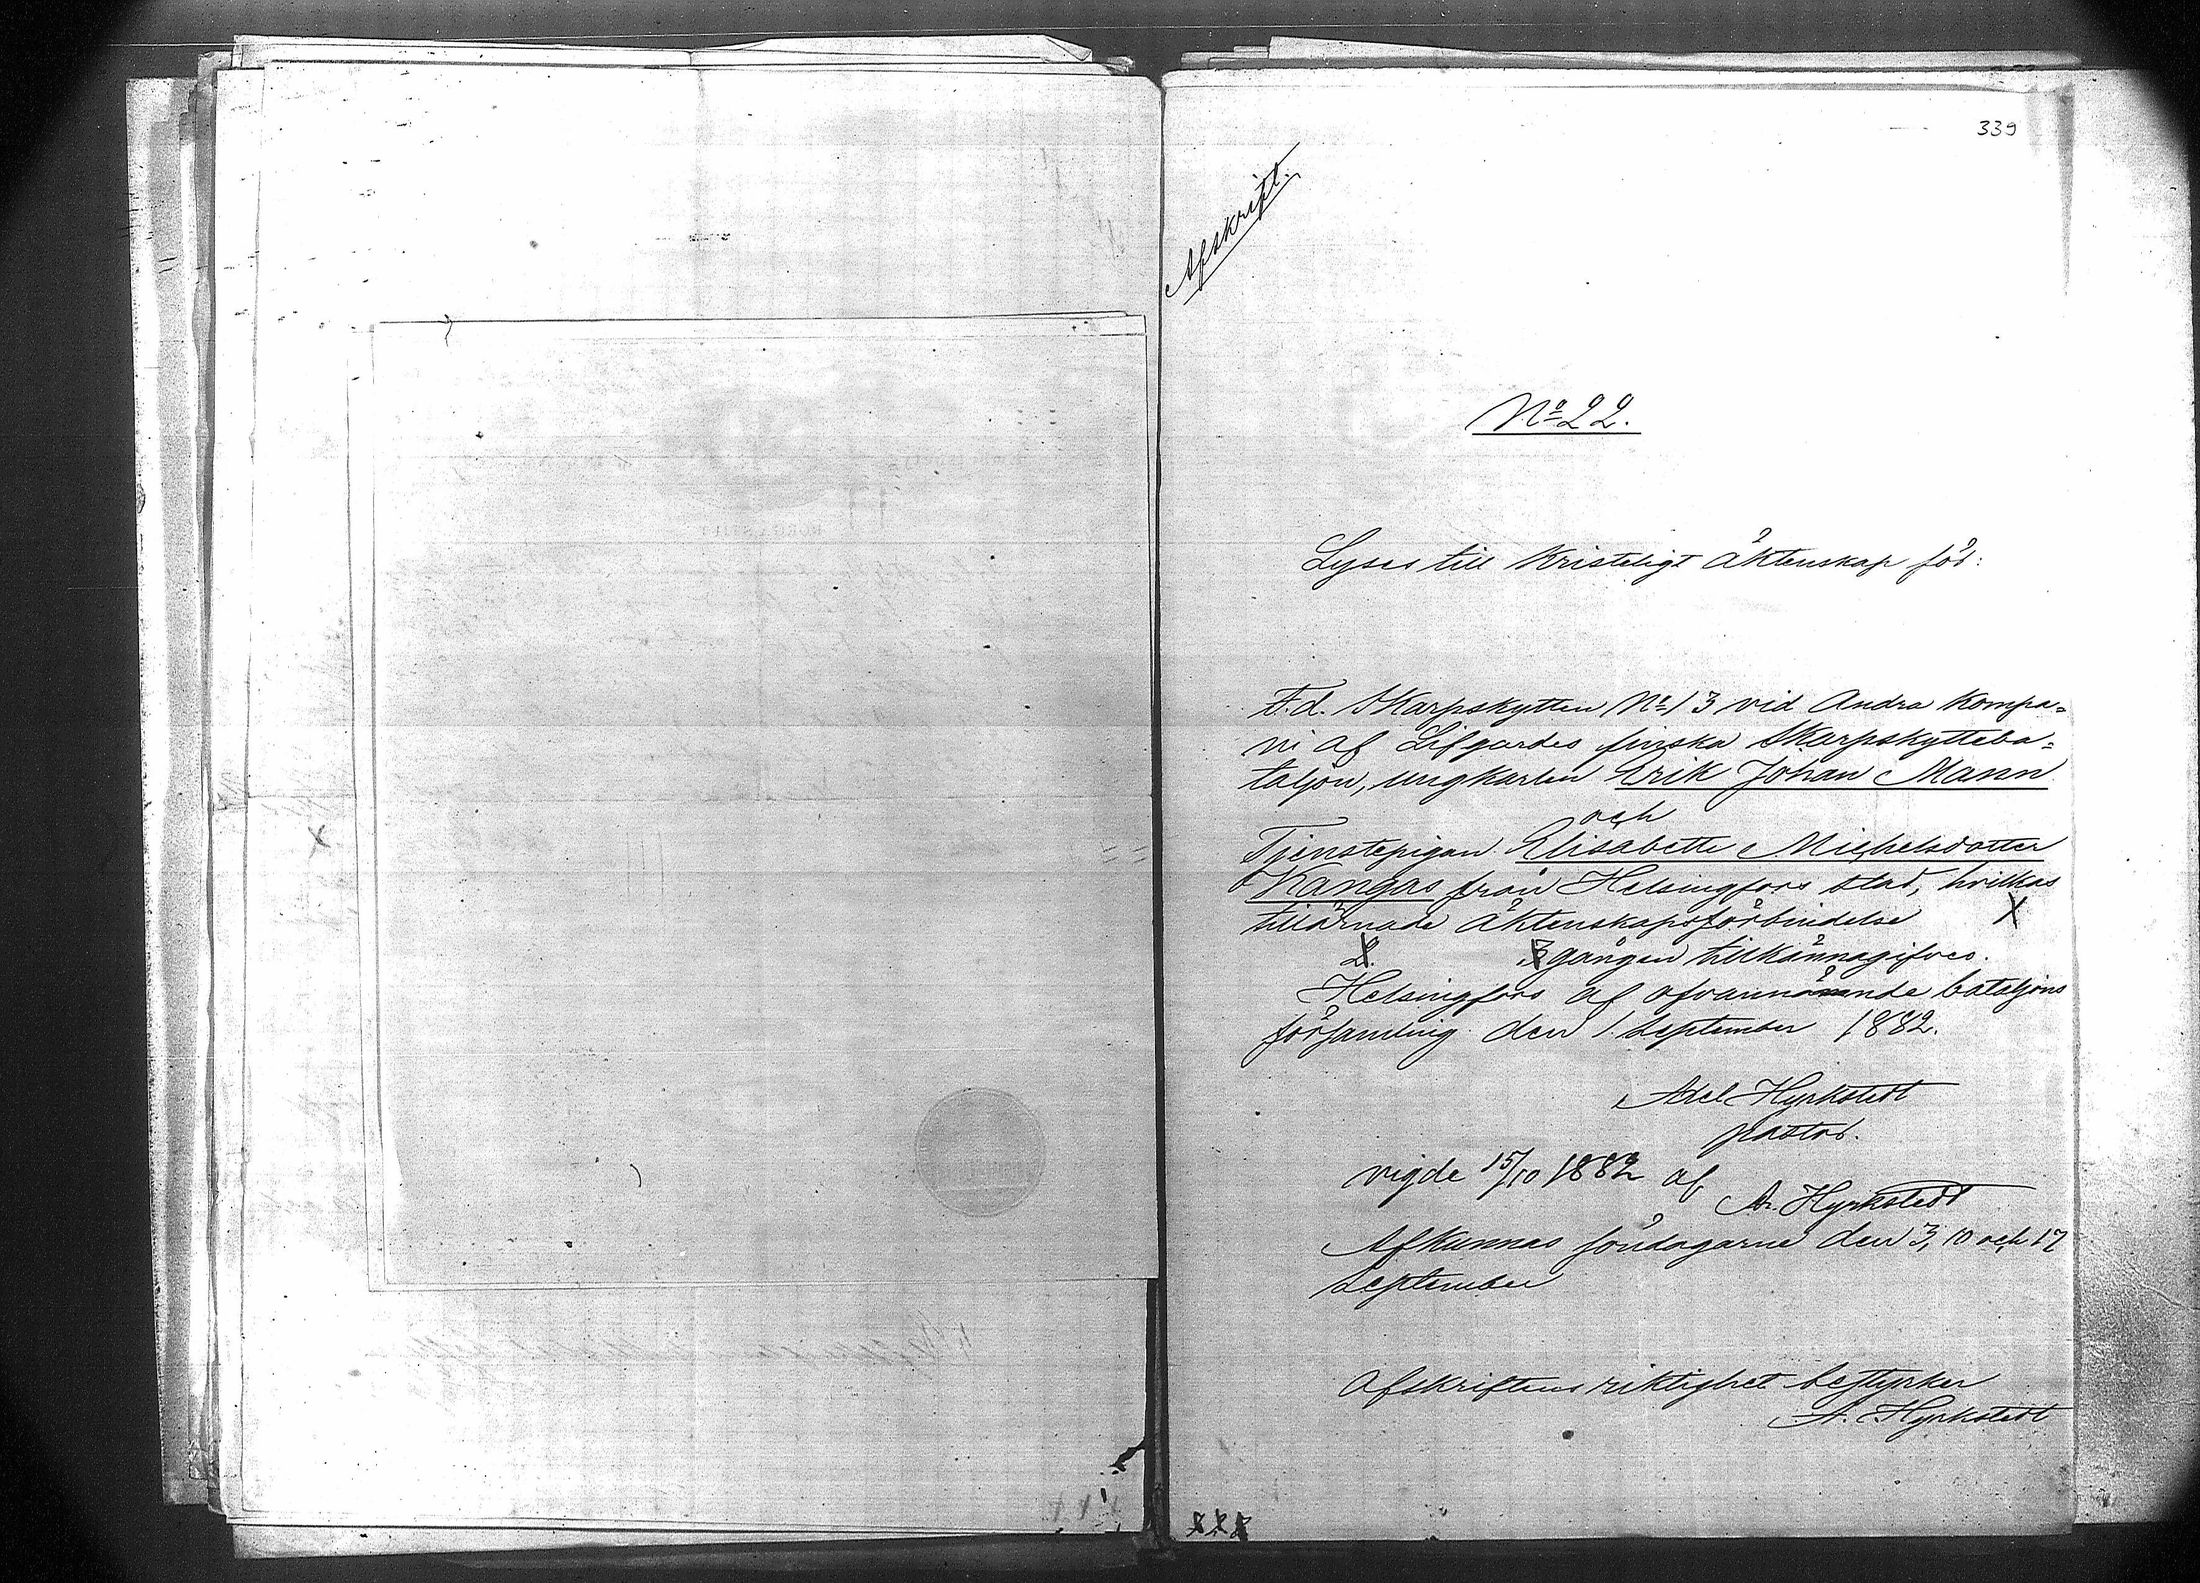 339
Afskrift.
No 22.
Lyses till Kristeligt äktenskap för:
F.d. Skarpskytten No 13 vid Andra Kompa=
ni af Lifgardes finska Skarpskytteba=
taljon, ungkarlen Erik Johan Mann
och
Tjenstepigan Elisabeth Michelsdotter
Kangas från Helsingfors stad, hvilkas
tillärnade äktenskapsförbindelse X
2. 3 gången tillkännagifves.
Helsingfors af ofvannämnde bataljons
församling den 1. September 1882.
Axel Hyrkstedt
pastor.
vigde 15/10 1882 af
Ax. Hyrkstedt
Afkunnas söndagarne den 3, 10 och 17
September
Afskriftens riktighet bestyrker
A. Hyrkstedt